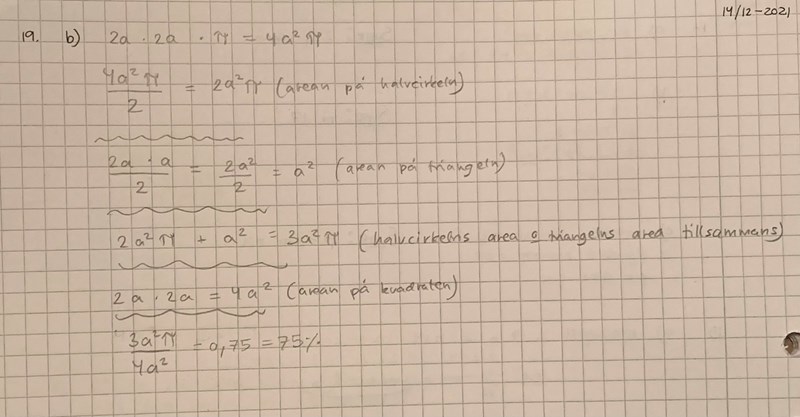 14/12-2021
19. b) 2a · 2a · π = 4a²π
4a²π/2 = 2a²π (arean på halvcirkeln)
2a · a/2 = 2a²/2 = a² (arean på triangeln)
2a²π + a² = 3a²π (halvcirkelns area o triangelns area tillsammans)
2a · 2a = 4a² (arean på kvadraten)
3a²π/4a² = 0,75 = 75%